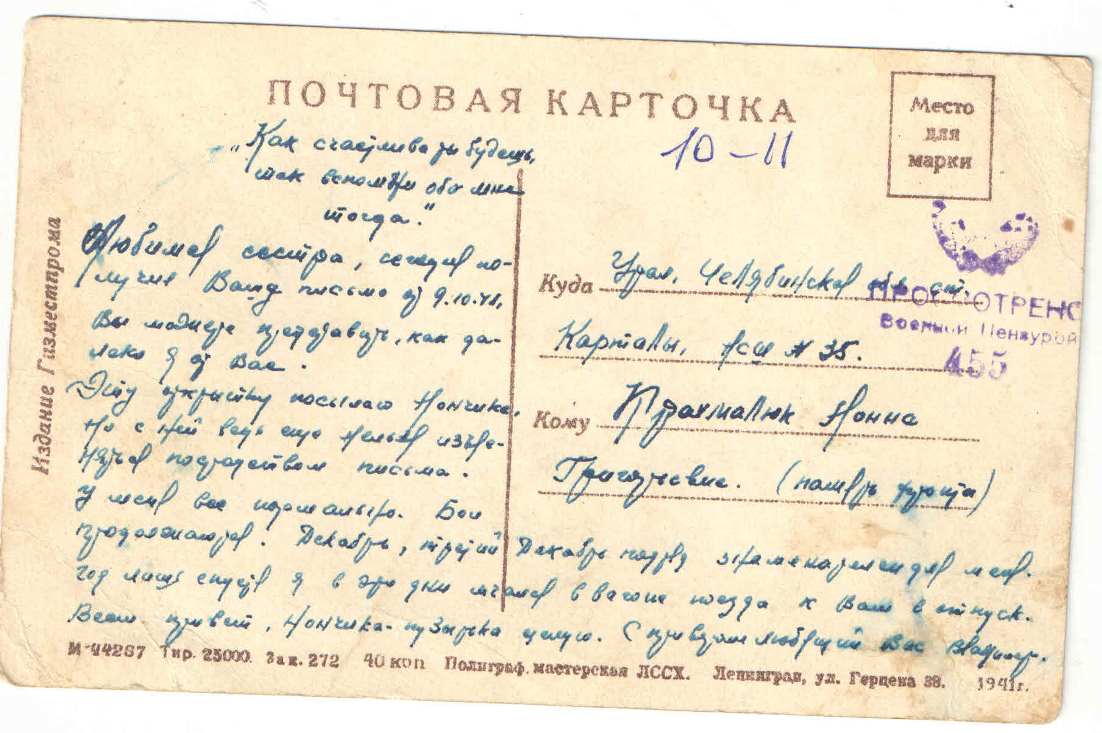 ПОЧТОВАЯ КАРТОЧКА
Место
для
марки
10-11
„Как счастлива ты будешь,
так вспомни обо мне
тогда."
Любимая сестра, сегодня по-
лучил Ваше письмо от 9.10.41,
Вы можете представить, как да-
леко я от Вас.
Эту открытку посылаю Нончике.
Но с ней ведь еще нельзя изъяс-
няться посредством письма.
У меня все нормально. Бои
продолжаются. Декабрь, третий Декабрь подряд знаменателен для меня.
Год лишь спустя я в эти дни мчался в вагоне поезда к Вам в отпуск.
Всем привет, Нончика-пузырька целую. С приветом любящий Вас Владимир.
Куда Урал, Челябинская обл. ст.
Карталы, НСШ № 35.
Кому Крахмалюк Нонна
Григорьевне.
ПРОСМОТРЕНО
Военной Цензурой
455
Издание Газместпрома
М-44267 Тир. 25000. Зак. 272 40 коп Полиграф. мастерская ЛССХ. Ленинград, ул. Герцена 38. 1941г.